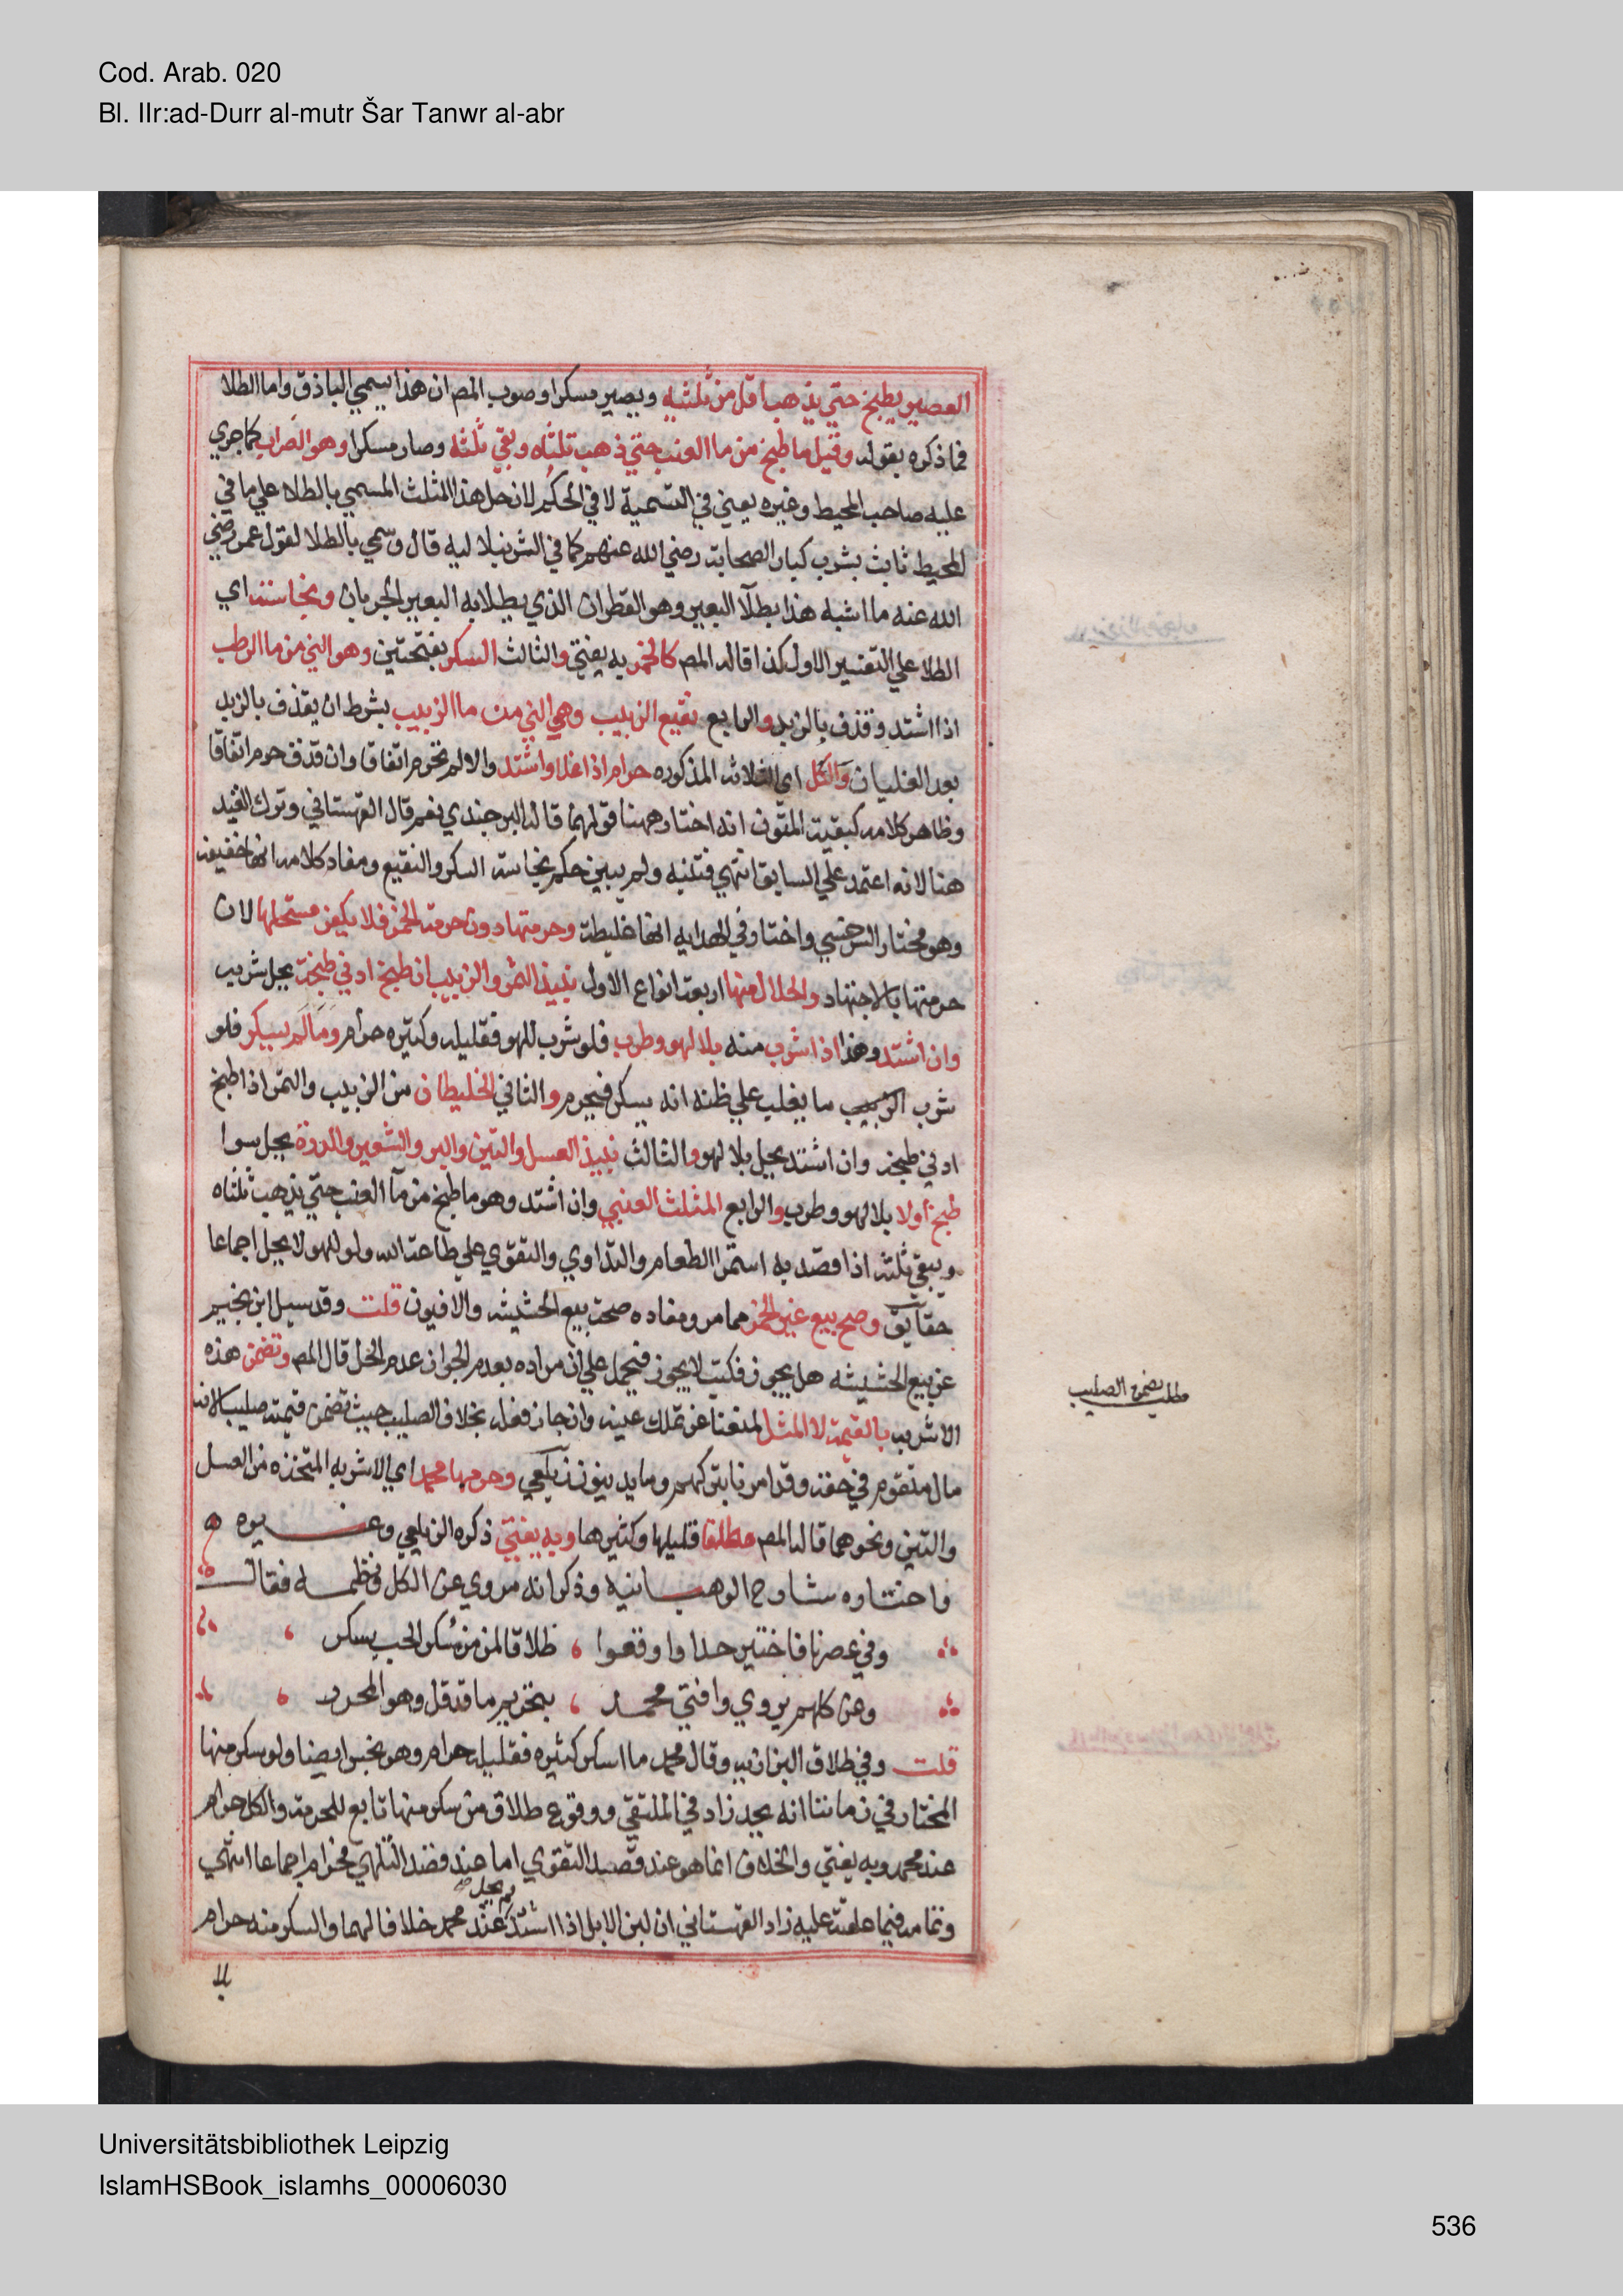 Cod. Arab. 020
Bl. IIr:ad-Durr al-mutr Šar Tanwr al-abr
العصير يطبخ حتي يذهب اقل من ثلثيه ويصير مسكرا وصوب المص ان هذا يسمي الباذق واما الطلا
فما ذكره بقوله وقيل ما طبخ من ما العنب حتي ذهب ثلثاه وبقي ثلثه وصار مسكرا وهو الصواب كما جري
عليه صاحب المحيط وغيره يعني في التسمية لا في الحكم لان حل هذا المثلث المسمي بالطلا علي ما في
المحيط ثابت بشرب كبار الصحابة رضي الله عنهم كما في الشرنبلاليه قال وسمي بالطلا لقول عمر رضي
الله عنه ما اشبه هذا بطلآ البعير وهو القطران الذي يطلا به البعير الجربان ونجاسته اي
الطلا علي التفسير الاول كذا قاله المص كالخمر به يفتي والثالث السكر بفتحتين وهو الني من ما الرطب
اذا اشتد وقذف بالزبد والرابع نقيع الزبيب وهي الني من ما الزبيب بشرط ان يقذف بالزبد
بعد الغليان والكل اي الثلاثه المذكوره حرام اذا غلا واشتد والا لم تحرم اتفاقا وان قذف حرم اتفاقا
وظاهر كلامه كبقية المتون انه اختار ههنا قولهما قاله البرجندي نعم قال القهستاني وترك القيد
هنا لانه اعتمد علي السابق انتهي فتنبه ولم يبين حكم نجاسة السكر والنقيع ومفاد كلامه انها خفيفة
وهو مختار السرخسي واختار في الهدايه انها غليظة وحرمتها دون حرمة الخمر فلا يكفر مستحلها لان
حرمتها بالاجتهاد والحلال منها اربعة انواع الاول نبيذ التمر والزبيب ان طبخ ادني طبخة يحل شربه
وان اشتد وهذا اذا شرب منه بلا لهو وطرب فلو شرب للهو فقليله وكثيره حرام وما لم يسكر فلو
شرب ما يغلب علي ظنه انه يسكر فيحرم والثاني الخليطان من الزبيب والتمر اذا طبخ
ادني طبخه وان اشتد يحل بلا لهو والثالث نبيذ العسل والتين والبر والشعير والذرة يحل سوا
طبخ اولا بلا لهو وطرب والرابع المثلث العنبي وان اشتد وهو ما طبخ من مآ العنب حتي يذهب ثلثاه
ويبقي ثلثه اذا قصد به استمرا الطعام والتداوي والتقوي علي طاعة الله ولو للهو لا يحل اجماعا
حقايق وصح بيع غير الخمر مما مر ومفاده صحة بيع الحشيشه والافيون قلت وقد سيل ابن نجيم
عن بيع الحشيشه هل يجوز فكتب لا يجوز فيحمل علي ان مراده بعدم الجواز عدم الحل قال المص وتضمن هذه
الاشربه بالقيمة لا المثل لمنعنا عن تملك عينه وان جاز فعله بخلاف الصليب حيث تضمن قيمته صليبا لانه
مال متقوم في حقه وقد امرنا بتركهم وما يدينون زيلعي وحرمها محمد اي الاشربه المتخذه من العسل
والتين ونحوهما قاله المص مطلقا قليلها وكثيرها وبه يفتي ذكره الزيلعي وغيره
واختاره شارح الوهبانيه وذكر انه مروي عن الكل ونظمه فقال
وفي عصرنا فاختير حدا واوقعوا طلاقا لمن من مسكر الحب يسكر
وعن كلهم يروي وافتي محمد بتحريم ما قد قل وهو المحرر
قلت وفي طلاق البزازيه وقال محمد ما اسكر كثيره فقليله حرام وهو نجس ايضا ولو سكر منها
المختار في زماننا انه يحد زاد في الملتقي ووقوع طلاق من سكر منها تابع للحرمة والكل حرام
عند محمد وبه يفتي والخلاف انما هو عند قصد التقوي اما عند قصد التلهي فحرام اجماعا انتهي
وتمامه فيما علقته عليه زاد القهستاني ان لبن الابل اذا اشتد لم يحل عند محمد خلافا لهما والسكر منه حرام
بلا
مطلب تضمن الصليب
Universitätsbibliothek Leipzig
IslamHSBook_islamhs_00006030
536